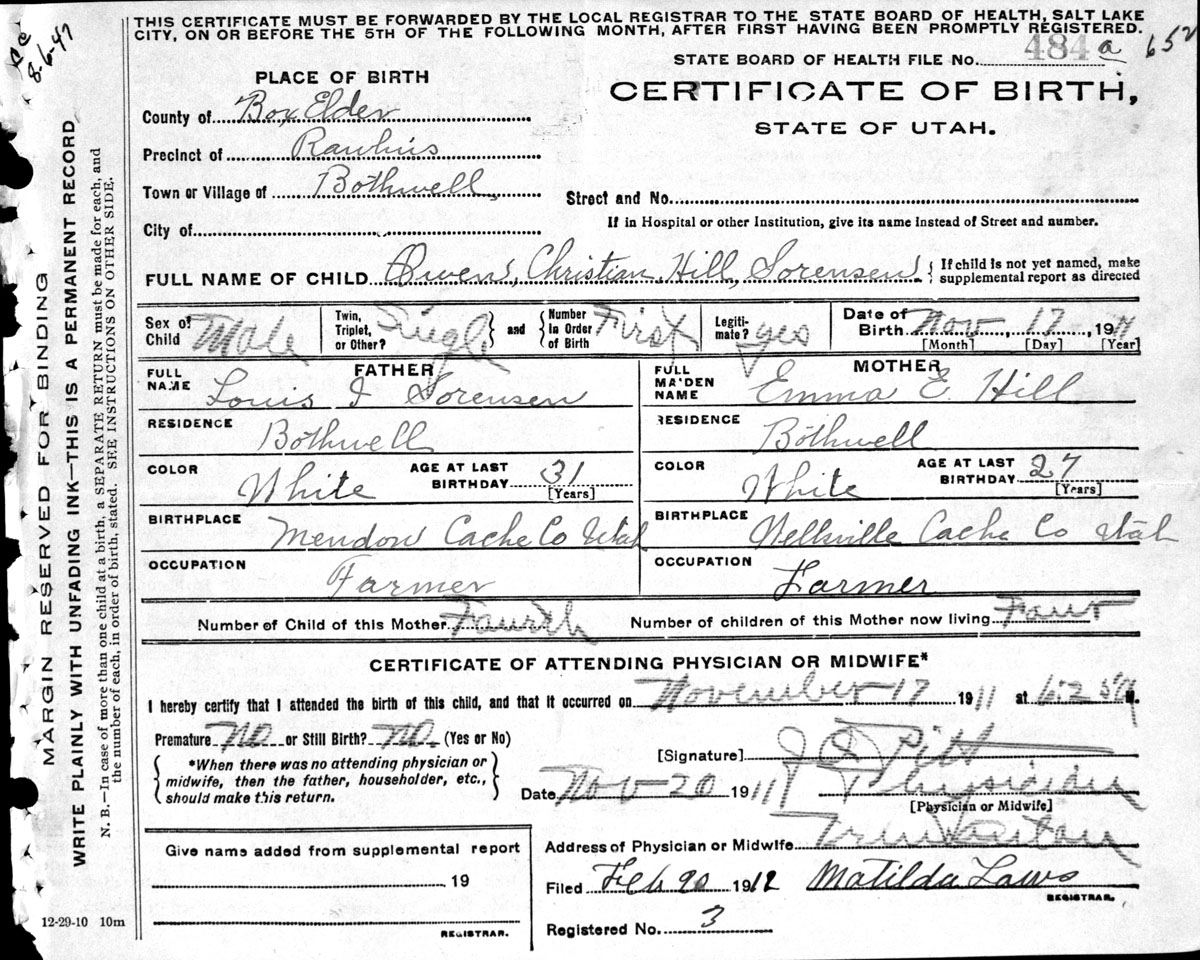 THIS CERTIFICATE MUST BE FORWARDED BY THE LOCAL REGISTRAR TO THE STATE BOARD OF HEALTH, SALT LAKE
CITY, ON OR BEFORE THE 5TH OF THE FOLLOWING MONTH, AFTER FIRST HAVING BEEN PROMPTLY REGISTERED.
8-6-47
652
STATE BOARD OF HEALTH FILE No. 484 a
PLACE OF BIRTH
CERTIFICATE OF BIRTH,
STATE OF UTAH.
County of Box Elder
Precinct of
Town or Village of Bothwell
Street and No.
City of
If in Hospital or other Institution, give its name instead of Street and number.
FULL NAME OF CHILD Owen, Christian, Hill, Sorensen { If child is not yet named, make supplemental report as directed
Sex of Child Male
Twin, Triplet, or Other? Single } and { Number in Order of Birth First
Legitimate? yes
Date of Birth Nov, 17, 1911
[Month] [Day] [Year]
FATHER
FULL NAME Louis J Sorensen
MOTHER
FULL MAIDEN NAME Emma E Hill
RESIDENCE Bothwell
RESIDENCE Bothwell
COLOR White
AGE AT LAST BIRTHDAY 31
[Years]
COLOR White
AGE AT LAST BIRTHDAY 27
[Years]
BIRTHPLACE Mendow Cache Co Utah
BIRTHPLACE Wellsville Cache Co Utah
OCCUPATION Farmer
OCCUPATION Farmer
Number of Child of this Mother Fourth
Number of children of this Mother now living Four
CERTIFICATE OF ATTENDING PHYSICIAN OR MIDWIFE*
I hereby certify that I attended the birth of this child, and that it occurred on November 17 1911 at 6:25 M.
Premature No or Still Birth? No. (Yes or No)
*When there was no attending physician or
midwife, then the father, householder, etc.,
should make this return.
[Signature] Pitt
Date Nov-20 1911
Physician
[Physician or Midwife]
Address of Physician or Midwife
Give name added from supplemental report
19
REGISTRAR.
Filed Feb 20 1912 Matilda Laws
REGISTRAR.
Registered No. 3
12-29-10 10m
MARGIN RESERVED FOR BINDING
WRITE PLAINLY WITH UNFADING INK—THIS IS A PERMANENT RECORD
N. B.—In case of more than one child at a birth, a SEPARATE RETURN must be made for each, and
the number of each, in order of birth, stated. SEE INSTRUCTIONS ON OTHER SIDE.